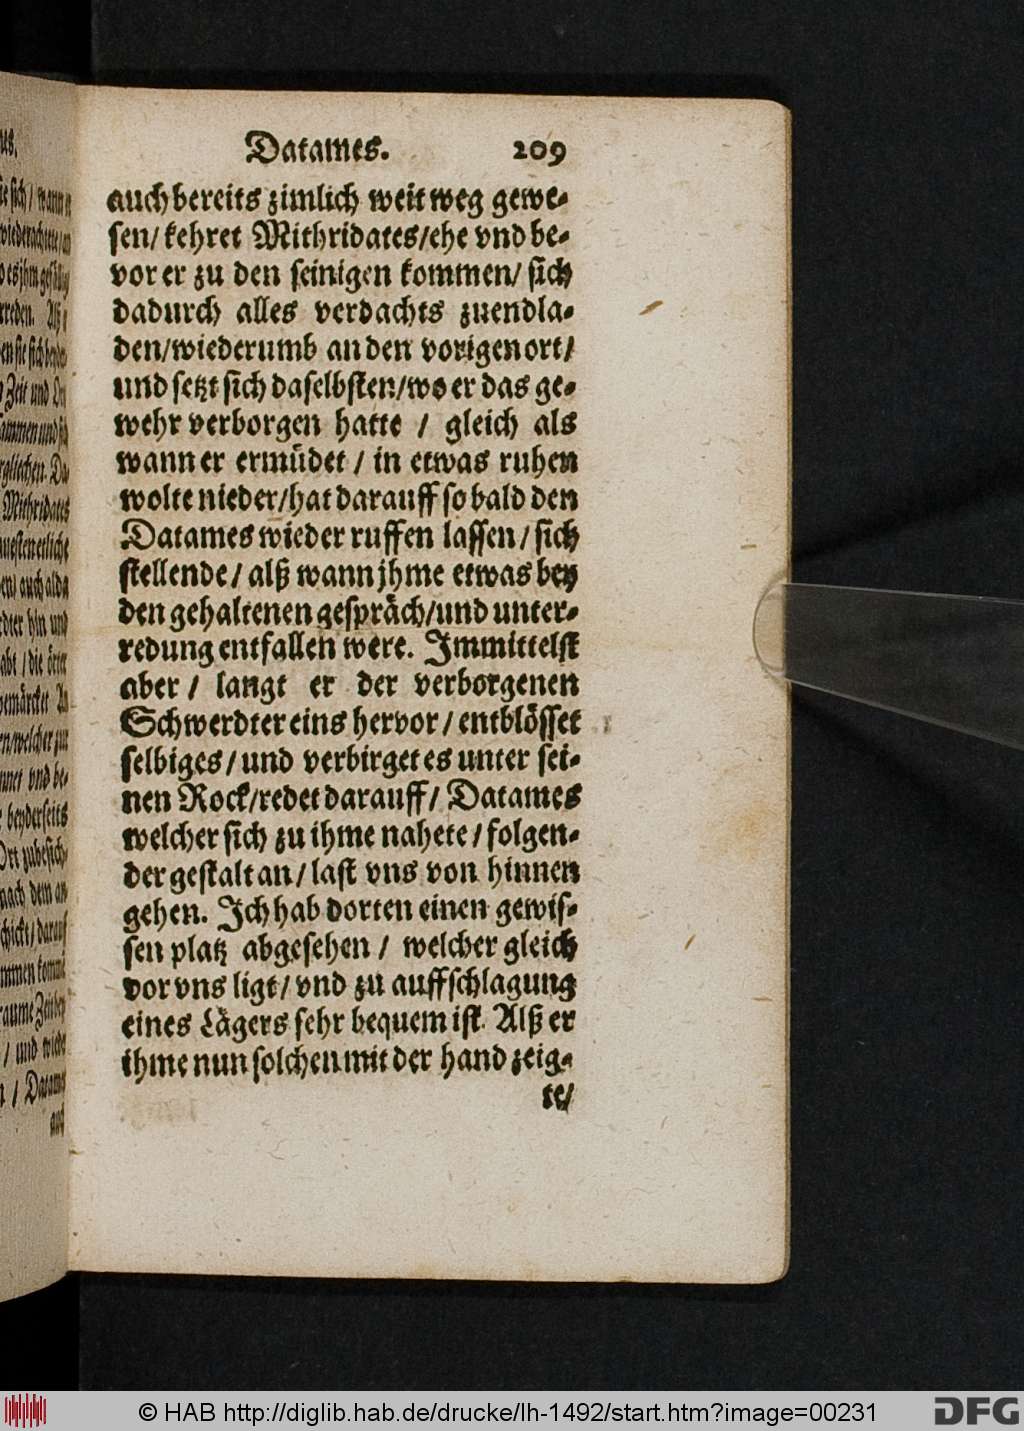 Datames. 209
auch bereits zimlich weit weg gewe-
sen/ kehret Mithridates/ehe vnd be-
vor er zu den seinigen kommen/ sich
dadurch alles verdachts zuendla-
den/wiederumb an den vorigen ort/
und setzt sich daselbsten/wo er das ge-
wehr verborgen hatte / gleich als
wann er ermüdet / in etwas ruhen
wolte nieder/hat darauff so bald den
Datames wieder ruffen lassen / sich
stellende / alß wann jhme etwas bey
den gehaltenen gespräch/und unter-
redung entfallen were. Immittelst
aber / langt er der verborgenen
Schwerdter eins hervor / entblösset
selbiges / und verbirget es unter sei-
nen Rock/redet darauff / Datames
welcher sich zu ihme nahete / folgen-
der gestalt an / last vns von hinnen
gehen. Ich hab dorten einen gewis-
sen platz abgesehen / welcher gleich
vor vns ligt / vnd zu auffschlagung
eines Lägers sehr bequem ist. Alß er
ihme nun solchen mit der hand zeig-
te/
© HAB http://diglib.hab.de/drucke/lh-1492/start.htm?image=00231
DFG